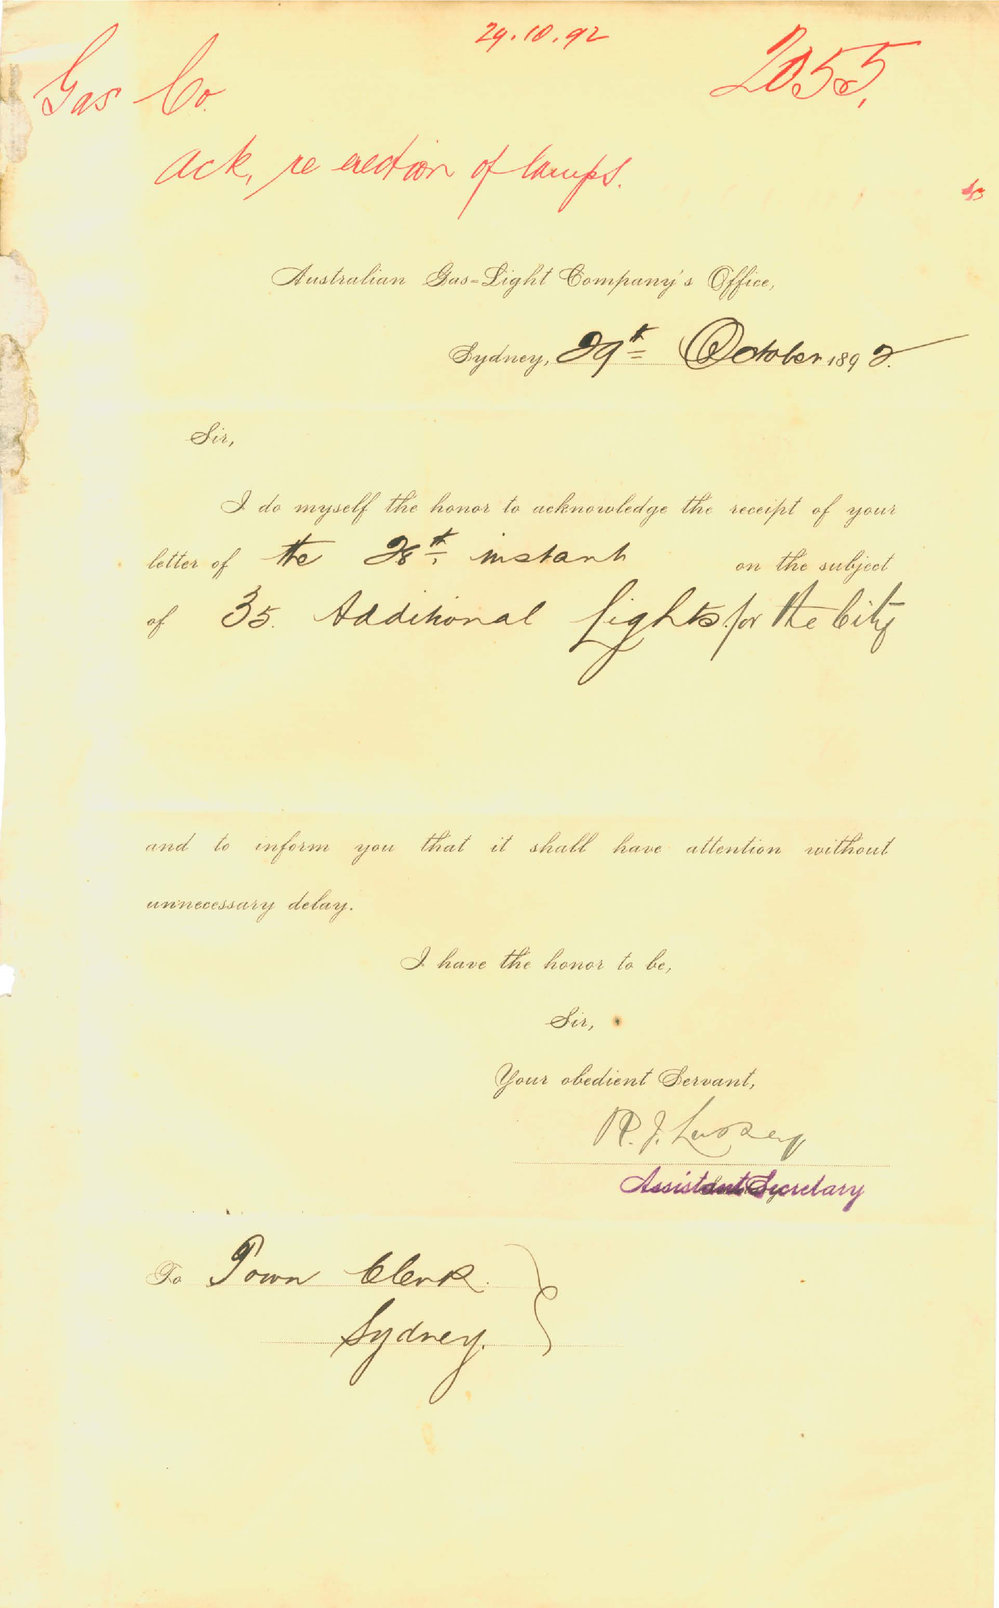 29.10.92
2055,
Gas Co.
Ack, re erection of lamps.
Australian Gas-Light Company's Office,
Sydney, 29th October 1892.
Sir,
I do myself the honor to acknowledge the receipt of your
letter of the 28th instant on the subject
of 35. Additional Lights for the City
and to inform you that it shall have attention without
unnecessary delay.
I have the honor to be,
Sir,
Your obedient Servant,
R. J.
Assistant Secretary
To Town Clerk.
Sydney.